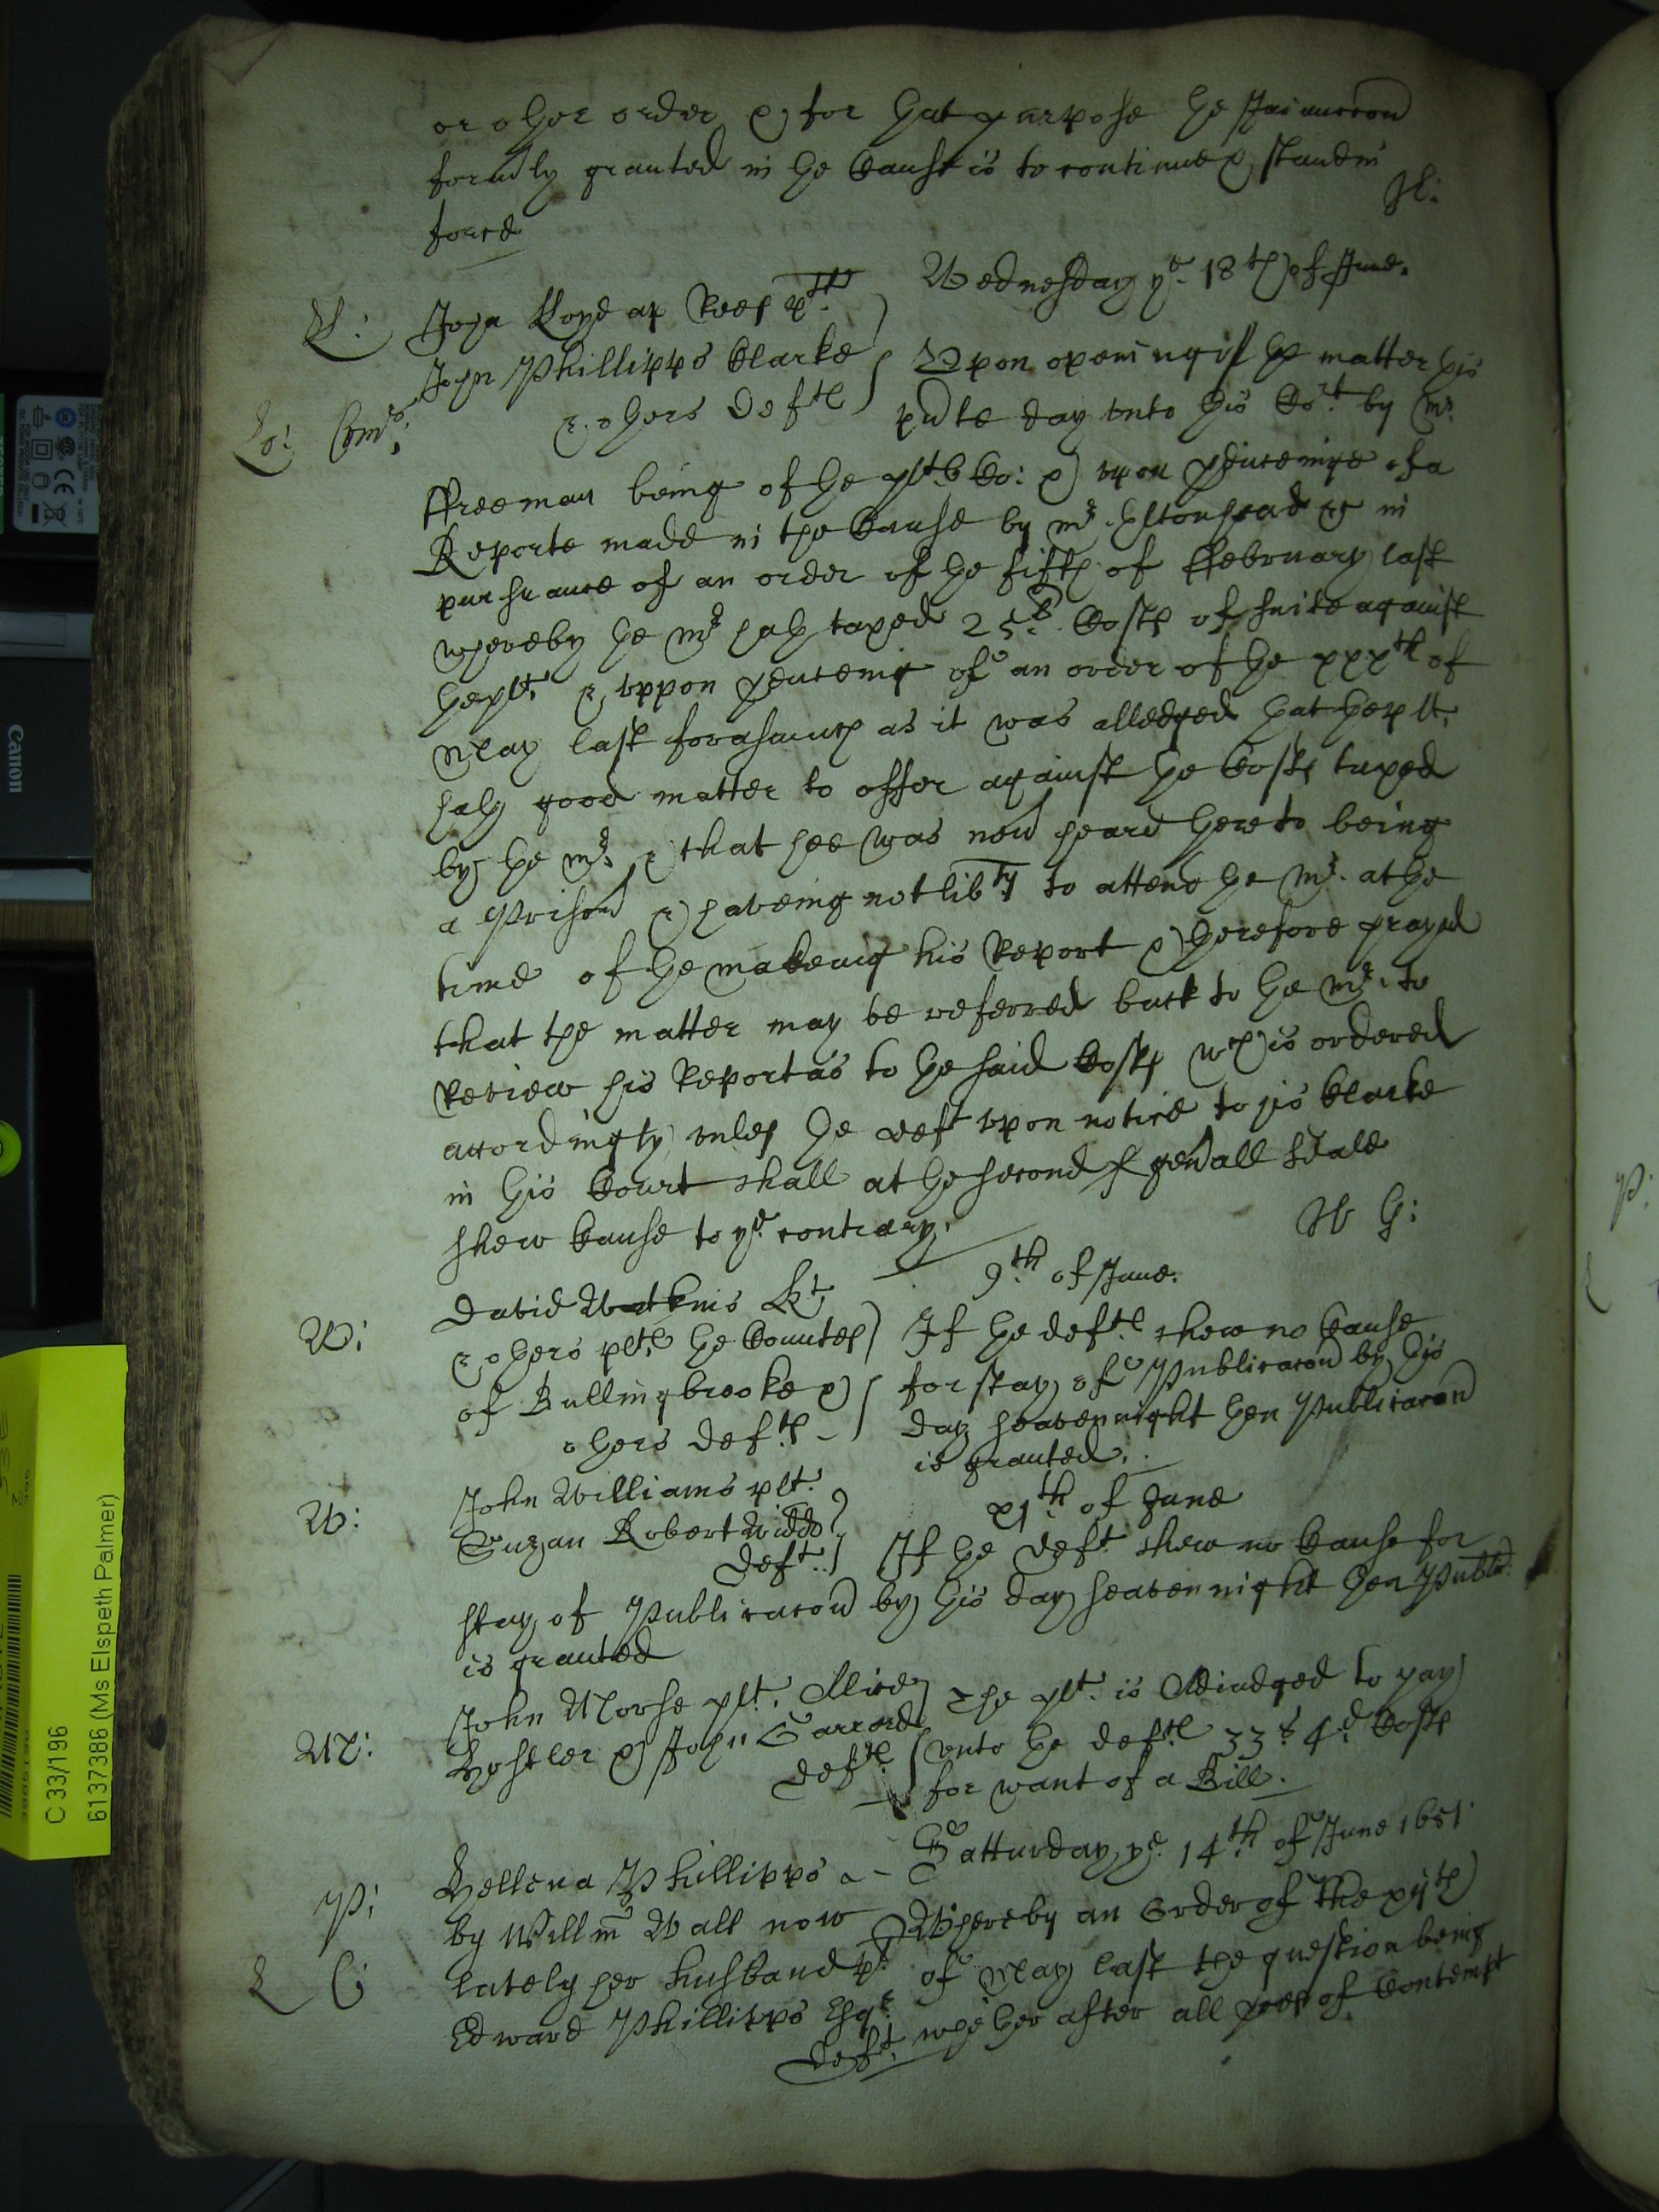 or other order & for that purpose the Iniunccon
form'ly granted in the Cause is to continue & stand in
force
H:
Wednesday ye 18th of June.
Ll: John Lloyd ap Rees plt
John Phillipps Clarke
& others Defts
Upon opening of the matter this
pnte day unto this Cort by Mr
ffreeman being of the plts Co: & upon readinge of a
Reporte made in the Cause by mr Eltonhead &c in
pursuance of an order of the fifth of ffebruary last
whereby the mr hath taxed 25li Costs of suite against
the plt & uppon readeing of an order of the xxxth of
May last forasmuch as it was alledged that the plt
hath good matter to offer against the Costs taxed
by the mr & that hee was nev' heard thereto being
a Prison' & haveing not lib'ty to attend the mr at the
time of the makeing his Report & therefore prayed
that the matter may be referred back to the mr to
Review his Report as to the said Costs wch is ordered
accordingly unles the deft upon notice to his Clarke
in this Court shall at the second gen'all Seale
shew Cause to ye contrary.
W G:
9th of June.
W: David Watkins Kt
& others plts the Countes
of Bullingbrooke &
others Defts
If the defts shew no Cause
for stay of Publicacon by this
day seavennight then Publicacon
is granted.
x1th of June
W: John Williams plt
Suzan Robert Widd
Deft
If the Deft shew no Cause for
stay of Publicacon by this day seavennight then Publicn
is granted
M: John Morse plt Alice
Hostler & John Garrard
Defts
The plt is Adiudged to pay
unto the defts 33s 4d Costs
for want of a Bill.
Satturday ye 14th of June 1651
P: Hellena Phillipps
by Willm Wall now
lately her husband plt
Edward Phillipps Esqr
Deft
Whereby an Order of the xijth
of May last the question being
whether after all pces of Contempt
C 33/196
6137386 (Ms Elspeth Palmer)
Canon